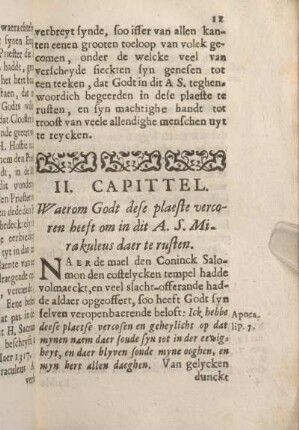 11
verbreyt synde, soo isser van allen kan-
ten eenen grooten toeloop van volck ge-
comen, onder de welcke veel van
verscheyde sieckten syn genesen tot
een teeken, dat Godt in dit A S, teghen-
woordich begeerden in dese plaeste te
rusten, en syn machtighe handt tot
troost van veele allendighe menschen uyt
te reycken.
II. CAPITTEL.
Waerom Godt dese plaeste verco-
ren heeft om in dit A. S. Mi-
rakuleus daer te rusten.
NAER de mael den Coninck Salo-
mon den costelycken tempel hadde
volmaeckt, en veel slacht-offerande had-
de aldaer opgeoffert, soo heeft Godt syn
selven veropenbaerende beloft: Ick hebbe Apoca.
deese plaetse vercosen en geheylicht op dat lip. 7.
mynen naem daer soude syn tot in der eewig-
heyt, en daer blyven sonde myne ooghen, en
myn hert allen daeghen. Van gelycken
dunckt